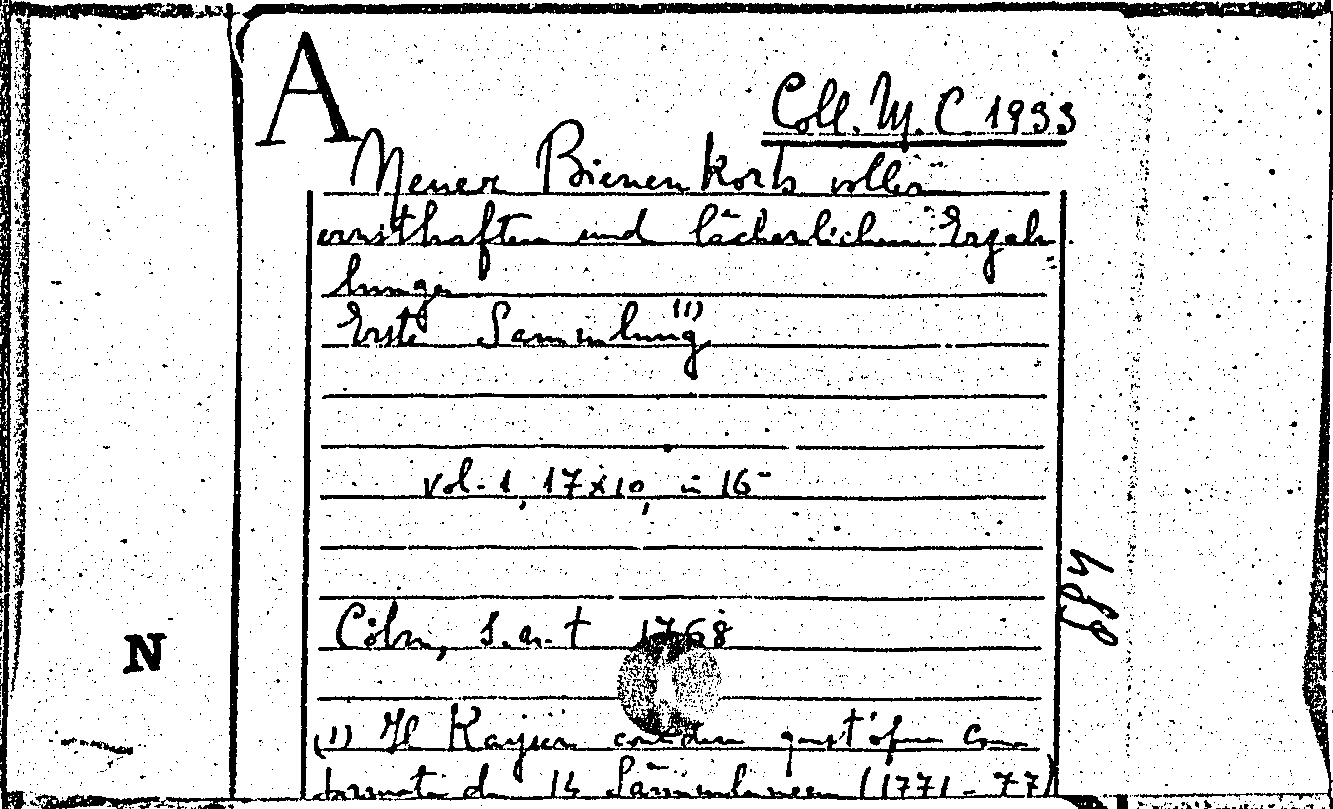 A
Coll. M. C 1933
Neuer Bienenkorb voller
ernsthaften und lächerlichen Erzäh
lungen
Erste Sammlung (1)
vol. 1, 17x10, in 16-
Cöln, s. n. t 1768
N
(1) Il Kayser quest'opera com
da 14 Sammlungen (1771-77)